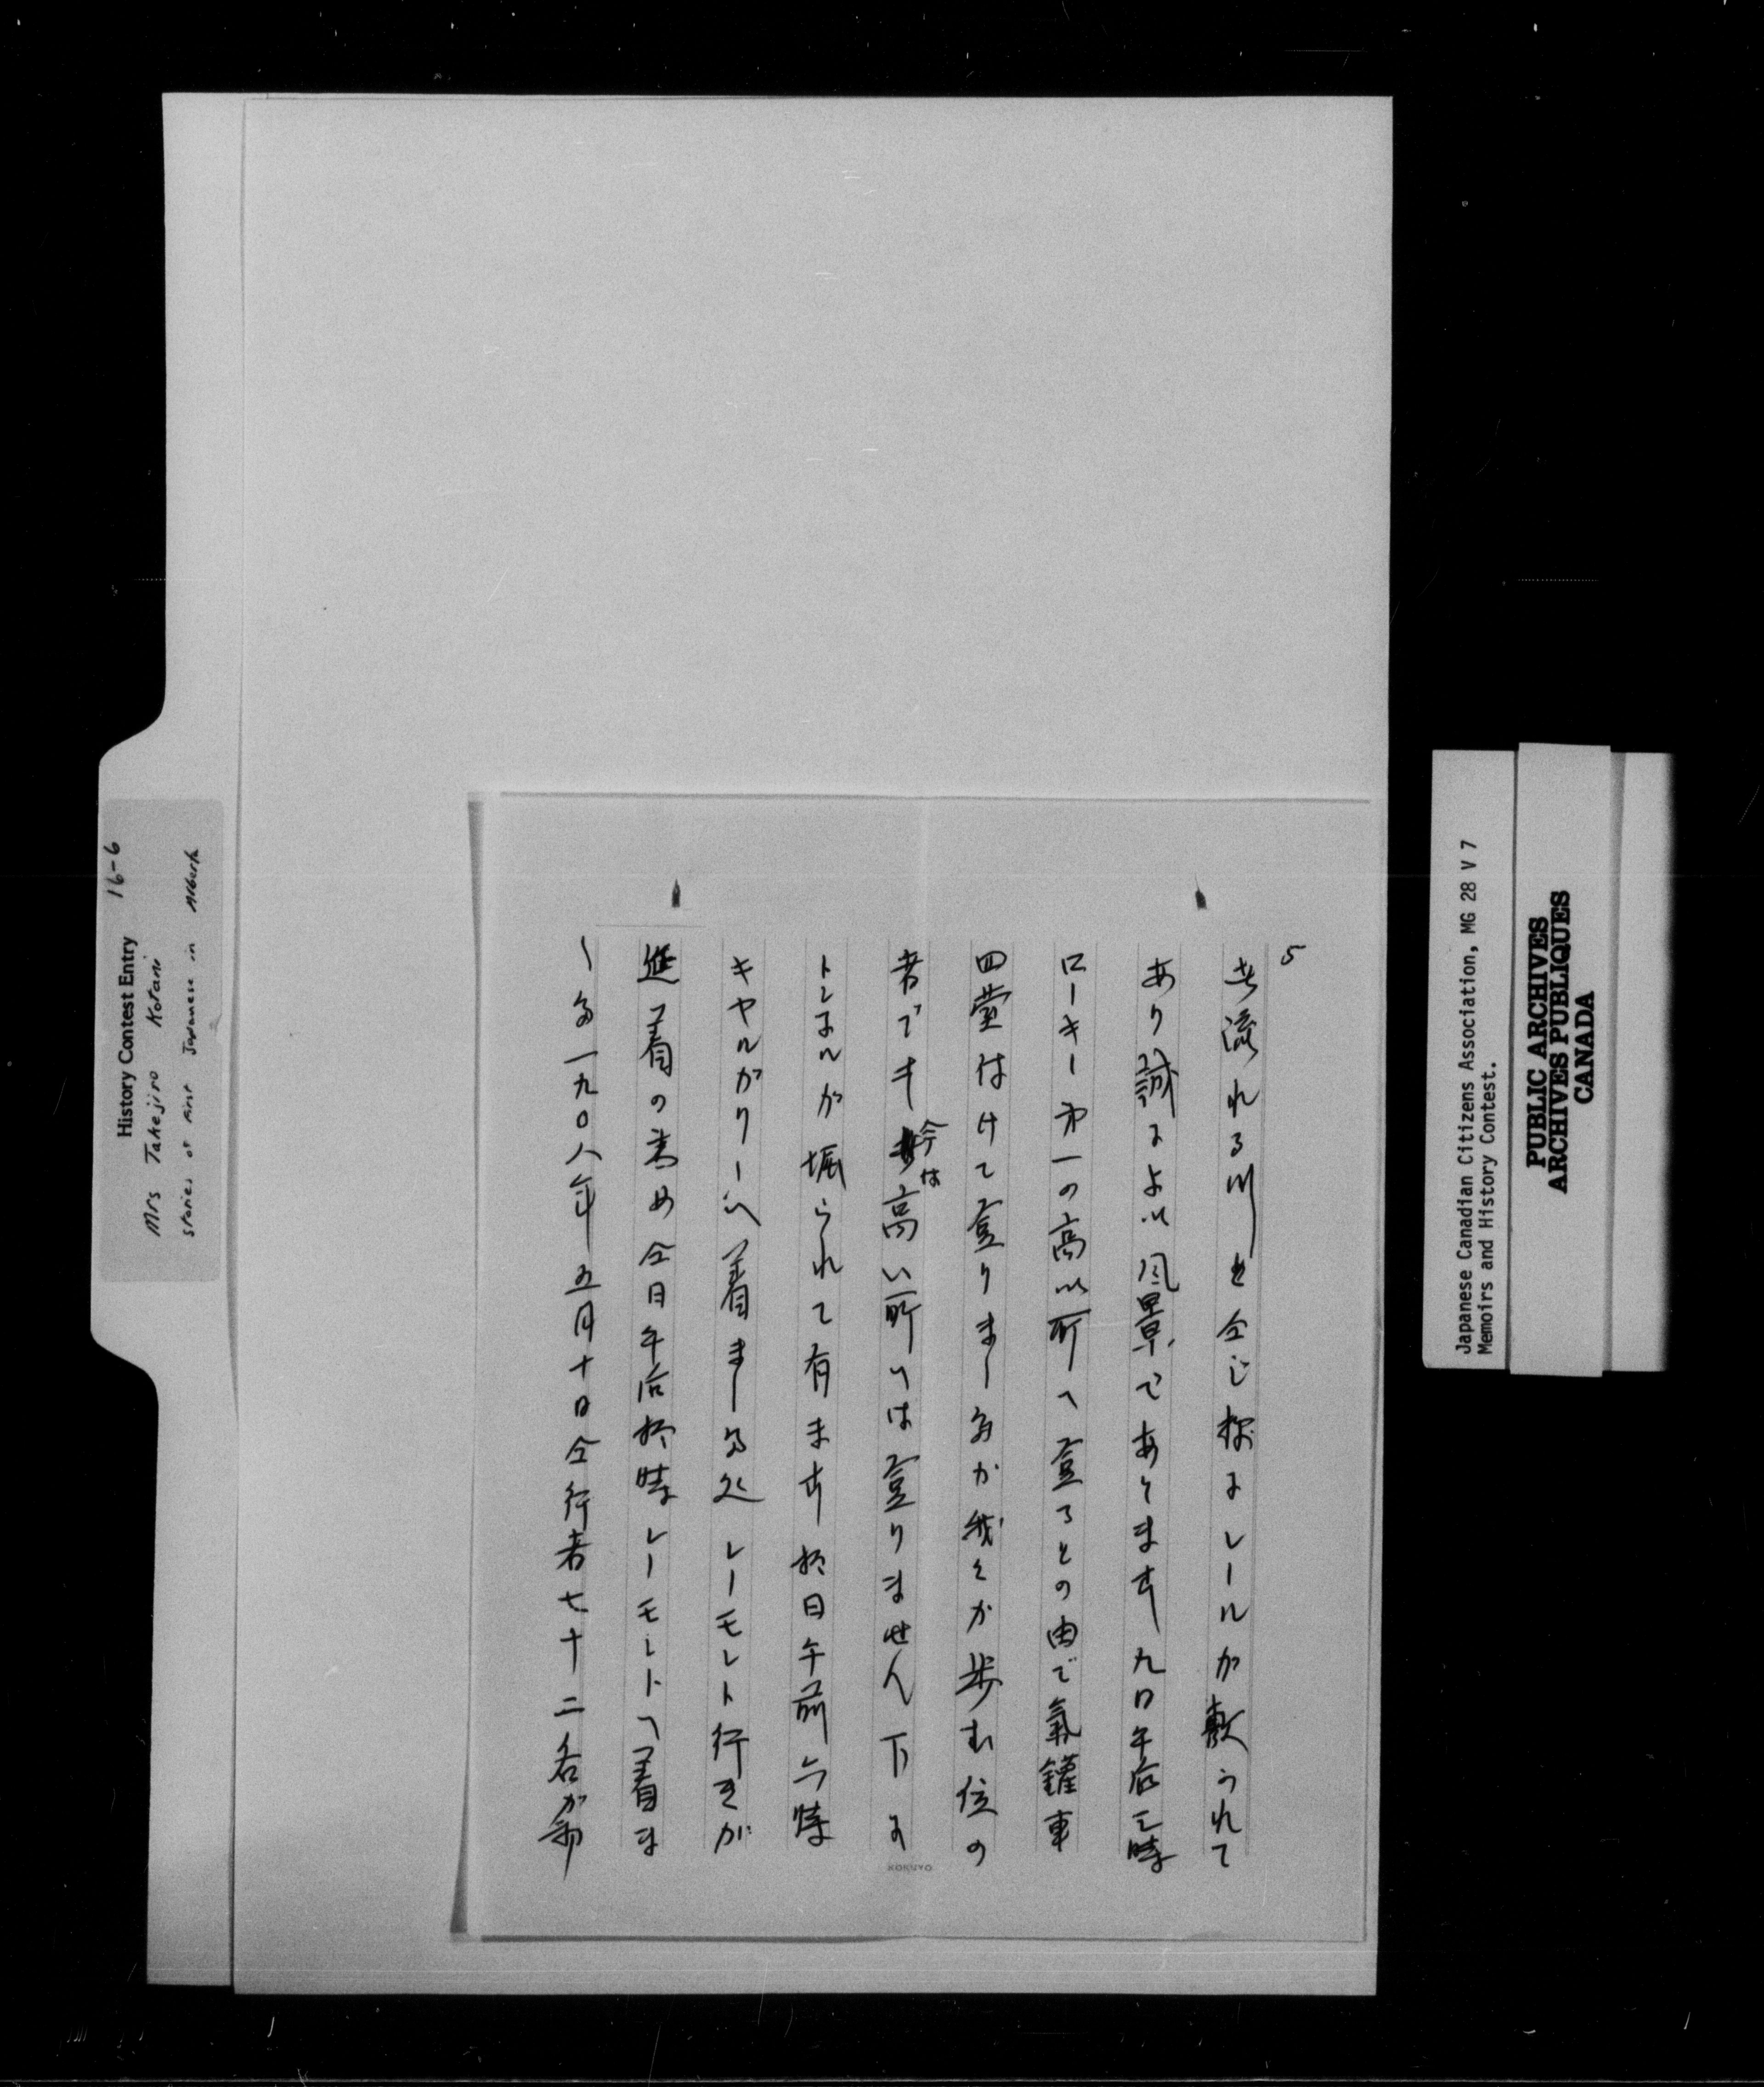 5
き流れる川も全じ様によレールが敷かれて
あり誠によい風景であります 九日午后三時
ローキー第一の高い所へ登るとの由で氣鑵車
四臺付けて登りましたが我々が歩む位の
者です 今は高い所へは登りません 下に
トンネルが堀られて有ます 拾日午前六時
キャルガリーへ着ました処 レーモント行きが
進着の為め全日午后拾時レーモントへ着ま
した 一九〇八年五月十日全行者七十二名が
KOKUYO
History Contest Entry 16-6
Mrs Takejiro Kotani
Stories of First Japanese in Alberta
Japanese Canadian Citizens Association, MG 28 V 7
Memoirs and History Contest.
PUBLIC ARCHIVES
ARCHIVES PUBLIQUES
CANADA